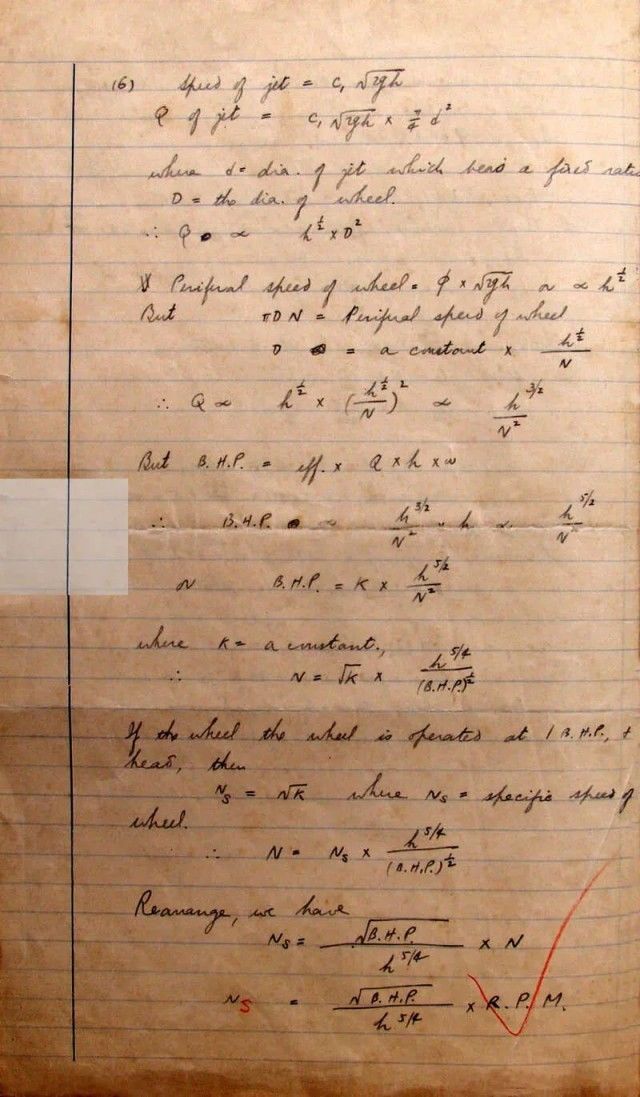 (6) Speed of jet = C, √2gh
Q of jet = C, √2gh × π/4 d²
where d = dia. of jet which bears a fixed ratio
D = the dia. of wheel.
∴ Q ∝ h^½ × D²
Periferal speed of wheel = ϕ × √2gh or ∝ h^½
But πDN = Periferal speed of wheel
D = a constant × h^½/N
∴ Q ∝ h^½ × (h^½/N)² ∝ h^3/2/N²
But B.H.P. = eff. × Q × h × w
∴ B.H.P. ∝ h^3/2/N² × h ∝ h^5/2/N²
or B.H.P. = K × h^5/2/N²
where K = a constant.,
∴ N = √K × h^5/4/(B.H.P.)^½
If the wheel the wheel is operated at 1 B.H.P., +
head, then
Ns = √K where Ns = specific speed of
wheel.
∴ N = Ns × h^5/4/(B.H.P.)^½
Rearrange, we have
Ns = √B.H.P./h^5/4 × N
Ns = √B.H.P./h^5/4 × R.P.M.